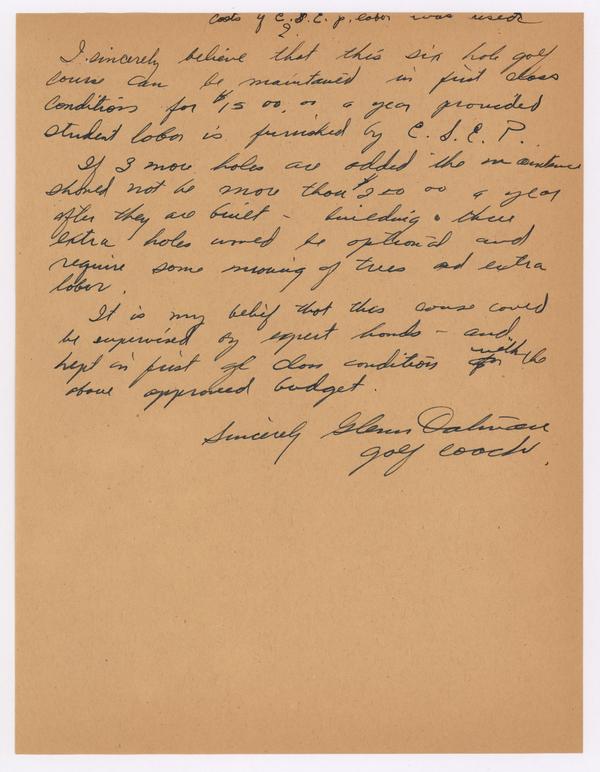 costs if C.S.E.P. labor was used
?
I sincerely believe that this six hole golf
course can be maintained in first class
conditions for $1500.00 a year provided
student labor is furnished by C.S.E.P.
If 3 more holes are added the maintenance
should not be more than $200 00 a year
after they are built - building three
extra holes would be optional and
require some moving of trees and extra
labor.
It is my belief that this course could
be supervised by expert hands - and
kept in first class conditions with the
above approved budget.
Sincerely Glenn
golf coach.